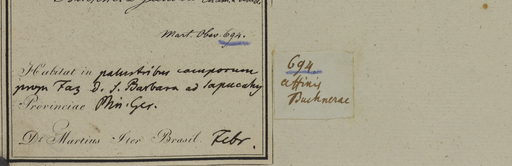 Mart. Obs. 694.
Habitat in palustribus camporum
prope Faz D. S. Barbara ad Sapucahy
Provinciae Min. Ger.
Dr Martius Iter Brasil. Febr.
694
affinis
Buchnerae